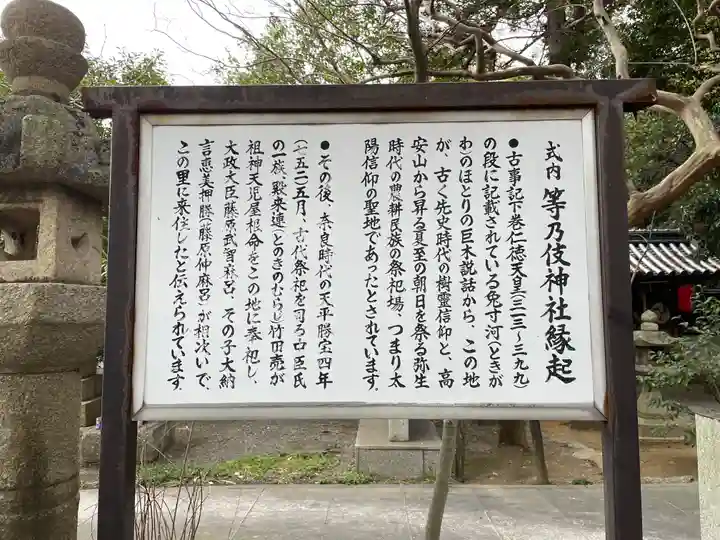 式内 等乃伎神社縁起
●古事記下巻(仁徳天皇(三一三〜三九九)
の段に記載されている兔寸河(ときが
わ)のほとりの巨木説話から、この地
が、古く先史時代の樹霊信仰と、高
安山から昇る夏至の朝日を祭る弥生
時代の農耕民族の祭祀場、つまり太
陽信仰の聖地であったとされています。
●その後、奈良時代の天平勝宝四年
(七五二)五月、古代祭祀を司る中臣氏
の一族、殿来連(とのきのむらじ)竹田売が
祖神天児屋根命をこの地に奉祀し、
大政大臣藤原武智麻呂、その子大納
言恵美押勝(藤原仲麻呂)が相次いで、
この里に来住したと伝えられています。